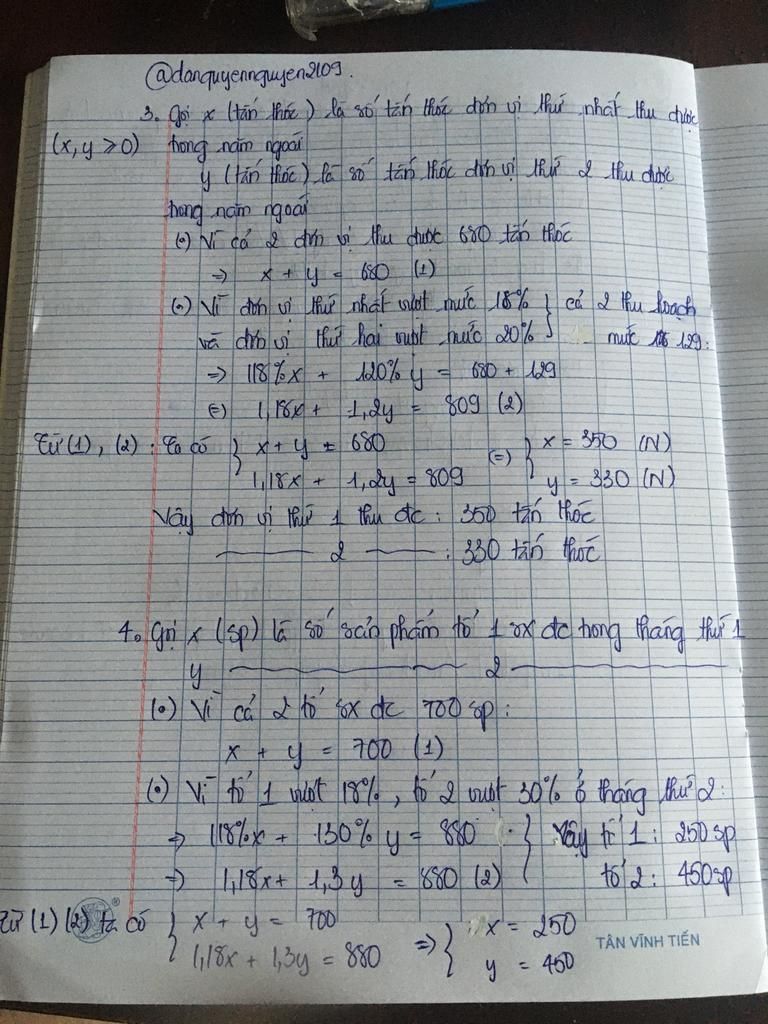 @danquyennguyen2109.
3. Gọi x (tấn thóc) là số tấn thóc đơn vị thứ nhất thu được
(x, y ⩾ 0) trong năm ngoái
y (tấn thóc) là số tấn thóc đơn vị thứ 2 thu được
trong năm ngoái
(•) Vì cả 2 đơn vị thu được 680 tấn thóc
=> x + y = 680 (1)
(•) Vì đơn vị thứ nhất vượt mức 18% } cả 2 thu hoạch
và đơn vị thứ hai vượt mức 20% mức 129:
=> 118%x + 120%y = 680 + 129
(=) 1,18x + 1,2y = 809 (2)
Từ (1), (2): Ta có { x + y = 680 (=) { x = 350 (N)
1,18x + 1,2y = 809 y = 330 (N)
Vậy đơn vị thứ 1 thu đc: 350 tấn thóc
——— 2 ——— : 330 tấn thóc
4. Gọi x (sp) là số sản phẩm tổ 1 sx đc trong tháng thứ 1
y ——— 2 ———
(•) Vì cả 2 tổ sx đc 700 sp:
x + y = 700 (1)
(•) Vì tổ 1 vượt 18%, tổ 2 vượt 30% ở tháng thứ 2:
=> 118%x + 130%y = 880 } Vậy tổ 1: 250 sp
=> 1,18x + 1,3y = 880 (2) tổ 2: 450 sp
Từ (1) (2) ta có { x + y = 700 => { x = 250
1,18x + 1,3y = 880 y = 450
TÂN VĨNH TIẾN